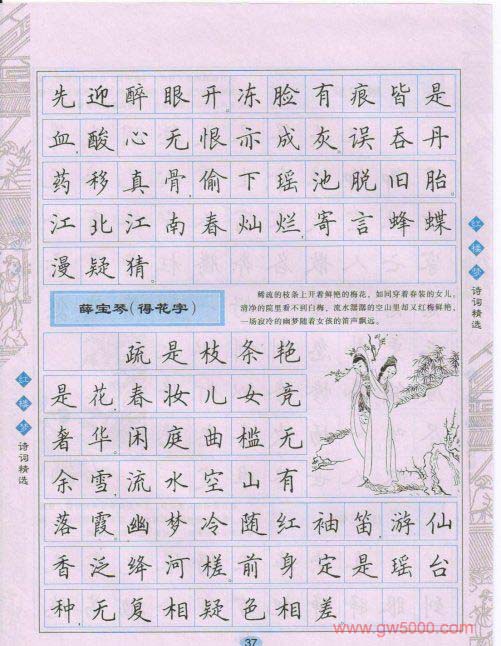 先迎醉眼开。冻脸有痕皆是
血,酸心无恨亦成灰。误吞丹
药移真骨,偷下瑶池脱旧胎。
江北江南春灿烂,寄言蜂蝶
漫疑猜。
薛宝琴(得花字)
稀疏的枝条上开着鲜艳的梅花,如同穿着春装的女儿,
清净的院里看不到白梅,流水潺潺的空山里却又红梅鲜艳,
一场寂冷的幽梦随着女孩的笛声飘远。
疏是枝条艳
是花,春妆儿女竞
奢华。闲庭曲槛无
余雪,流水空山有
落霞。幽梦冷随红袖笛,游仙
香泛绛河槎。前身定是瑶台
种,无复相疑色相差。
红楼梦
诗词精选
红楼梦
诗词精选
37
www.gw5000.com